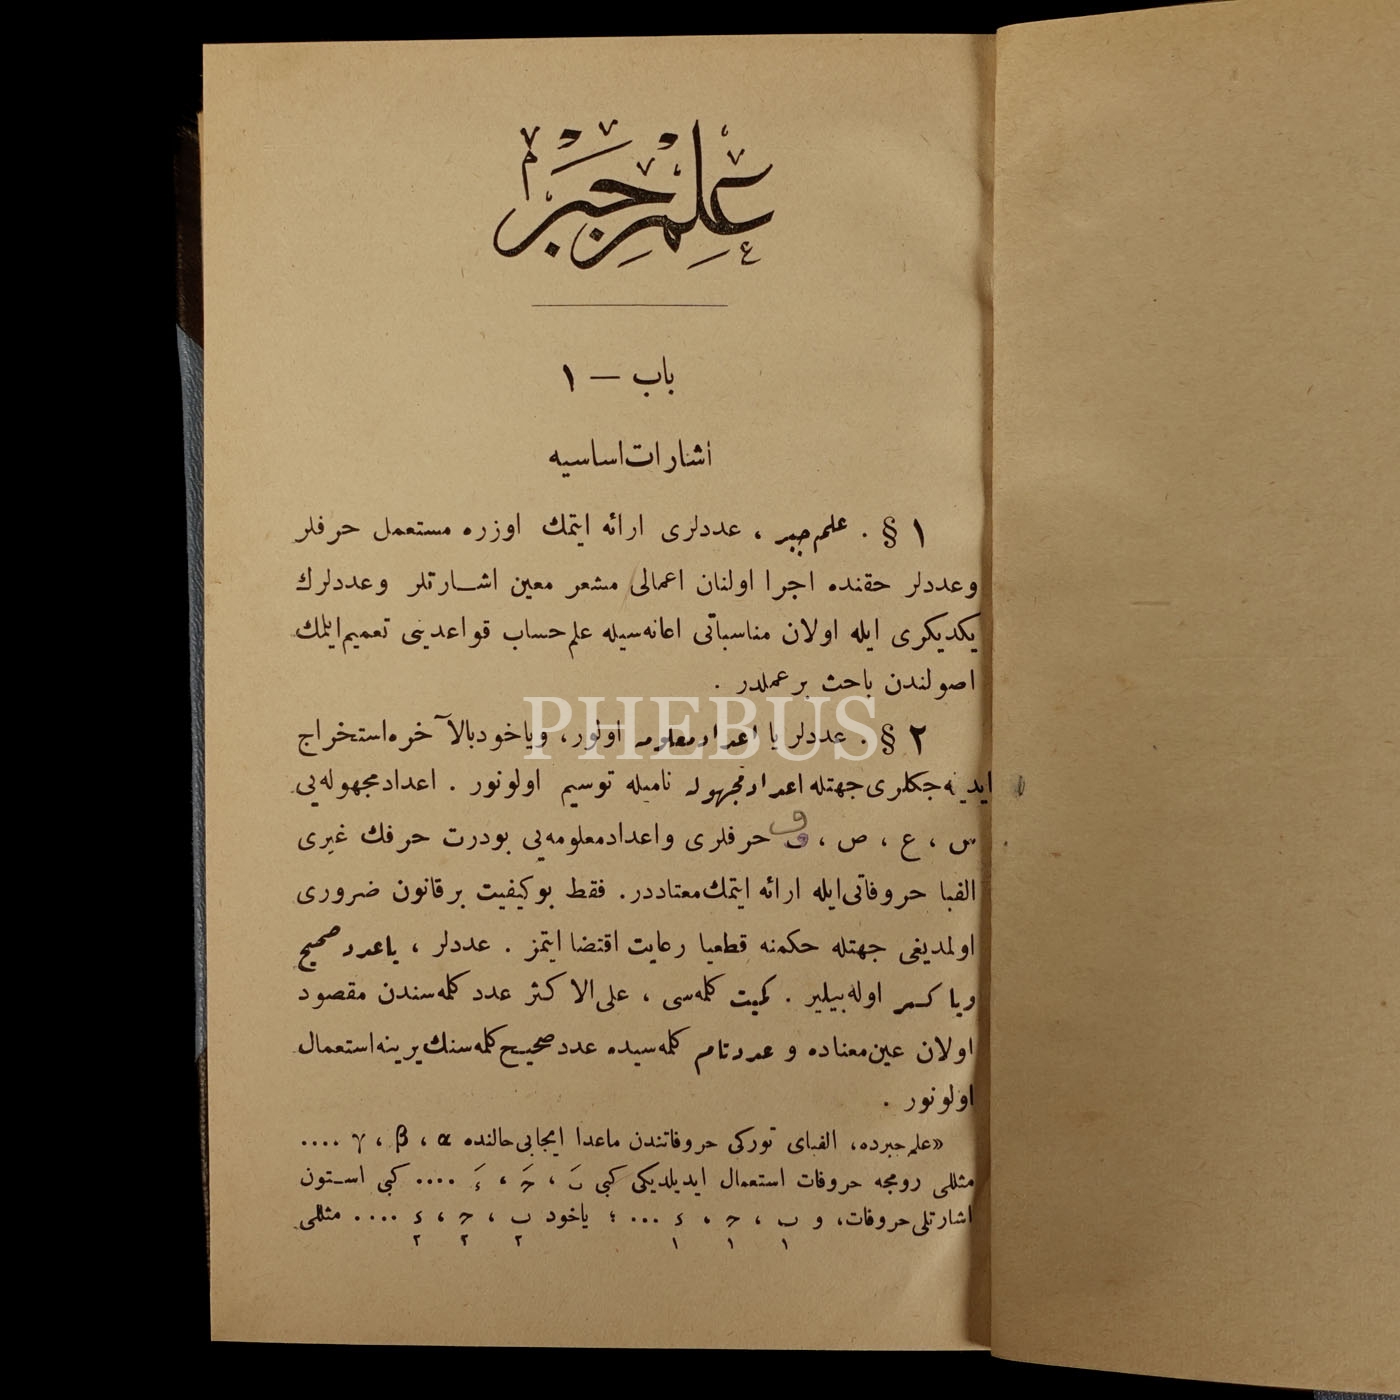 علم جبر
باب — ١
اشارات اساسیه
§ ١ . علم جبر ، عددلری ارائه ایتمك اوزره مستعمل حرفلر
وعددلر حقنده اجرا اولنان اعمالی مشعر معین اشـارتلر وعددلرك
یكدیكری ایله اولان مناسباتی اعانه‌سیله علم حساب قواعدینی تعمیم ایلمك
اصولندن باحث بر عملدر .
§ ٢ . عددلر یا اعداد معلومه اولور، ویاخود بالآخره استخراج
ایدیله‌جكلری جهتله اعداد مجهوله نامیله توسیم اولونور . اعداد مجهوله‌یی
س ، ع ، ص ، ف حرفلری واعداد معلومه‌یی بودرت حرفك غیری
الفبا حروفاتی ایله ارائه ایتمك معتاددر. فقط بو كیفیت بر قانون ضروری
اولمدیغی جهتله حكمنه قطعیا رعایت اقتضا ایتمز . عددلر ، یا عدد صحیح
ویا كسر اوله‌بیلیر . كمیت كلمه‌سی ، علی الاكثر عدد كلمه‌سندن مقصود
اولان عین معناده و عدد تام كلمه‌سیده عدد صحیح كلمه‌سنك یرینه استعمال
اولونور .
«علم جبرده، الفبای توركی حروفاتندن ماعدا ایجابی حالنده α ، β ، γ ....
مثللی رومجه حروفات استعمال ایدیلدیكی كبی بَ ، حَ ، ءَ .... كبی اسـتون
اشارتلی حروفات، و ب١ ، ح١ ، ء١ ... ؛ یاخود ب٢ ، ح٢ ، ء٢ .... مثللی
PHEBUS